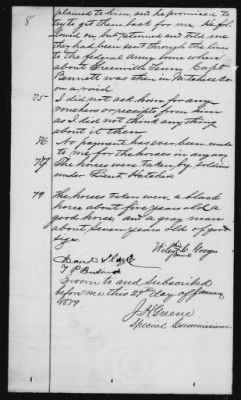 8
plained to him, and he promised to
try to get them back for me. He fol-
lowed on, but returned and told me
they had been sent through the lines
to the federal army some where
about Greenville Tenn. Capt
Bennett was then in Mitchel Co
on a raid.
75 I did not ask him for any
vouchers or receipts from him
as I did not think any thing
about it then.
76 No payment has ever been made
to me for the horses in any way
77 The horses were taken by soldiers
under Lieut
79 The horses taken were a black
horse about five years old a
good horse, and a gray mare
about seven years old of good
size.
Sworn to and subscribed
before me this 29th day of January
1879
J. K. Greene
Special Commissioner